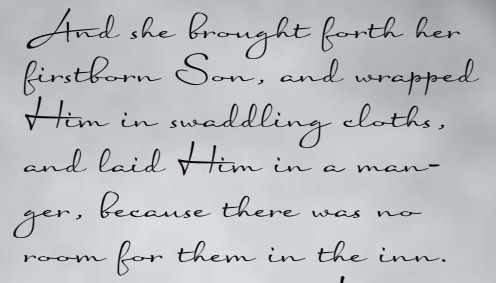 And she brought forth her
firstborn Son, and wrapped
Him in swaddling cloths,
and laid Him in a man-
ger, because there was no
room for them in the inn.